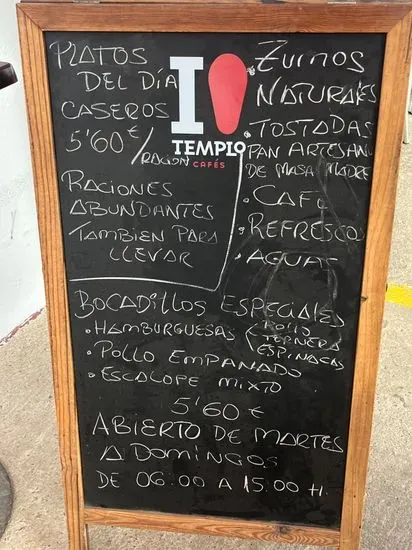 PLATOS
DEL DÍA
CASEROS
5'60€/RACION
RACIONES
ABUNDANTES
TAMBIEN PARA
LLEVAR
I
TEMPLO
CAFÉS
• ZUMOS
NATURALES
• TOSTADAS
PAN ARTESANO
DE MASA MADRE
• CAFE
• REFRESCOS
• AGUAS
BOCADILLOS ESPECIALES
• HAMBURGUESAS < POLLO
TERNERA
ESPINACAS
• POLLO EMPANADO
• ESCALOPE MIXTO
5'60 €
ABIERTO DE MARTES
A DOMINGOS
DE 06:00 A 15:00 H.